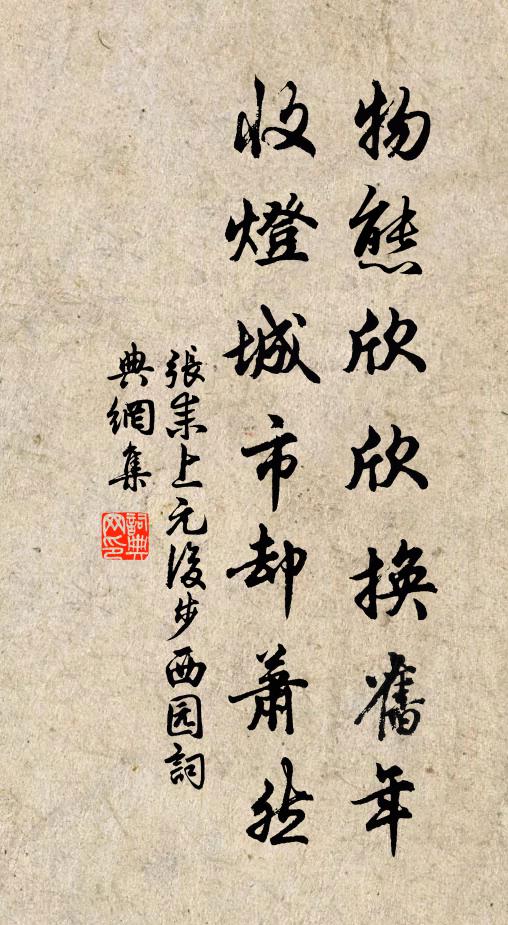 物態欣欣換舊年
收燈城市却蕭然
張耒上元後步西园詞
典網集
詞典网印